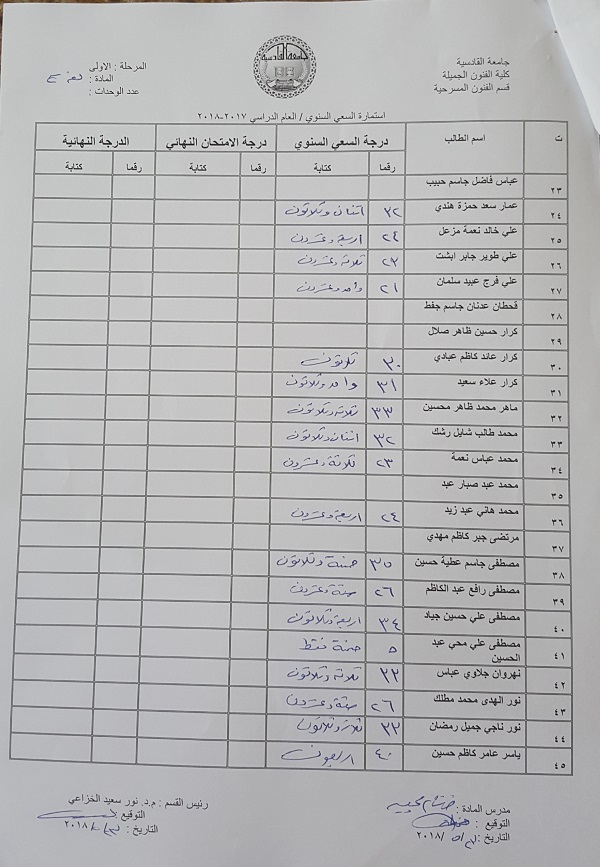 جامعة القادسية
كلية الفنون الجميلة
قسم الفنون المسرحية
جامعة القادسية
المرحلة : الاولى
المادة :
عدد الوحدات :
استمارة السعي السنوي / العام الدراسي ٢٠١٧-٢٠١٨
ت اسم الطالب درجة السعي السنوي درجة الامتحان النهائي الدرجة النهائية
رقما كتابة رقما كتابة رقما كتابة
٢٣ عباس فاضل جاسم حبيب
٢٤ عمار سعد حمزة هندي ٣٢ اثنان وثلاثون
٢٥ علي خالد نعمة مزعل ٢٤ اربعة وعشرون
٢٦ علي طوير جابر ابشت ٢٣ ثلاثة وعشرون
٢٧ علي فرج عبيد سلمان ٢١ واحد وعشرون
٢٨ قحطان عدنان جاسم جفط
٢٩ كرار حسين ظاهر صلال
٣٠ كرار عائد كاظم عبادي ٣٠ ثلاثون
٣١ كرار علاء سعيد ٣١ واحد وثلاثون
٣٢ ماهر محمد ظاهر محسين ٣٣ ثلاثة وثلاثون
٣٣ محمد طالب شايل رشك ٣٢ اثنان وثلاثون
٣٤ محمد عباس نعمة ٢٣ ثلاثة وعشرون
٣٥ محمد عبد صبار عبد
٣٦ محمد هاني عبد زيد ٢٤ اربعة وعشرون
٣٧ مرتضى جبر كاظم مهدي
٣٨ مصطفى جاسم عطية حسين ٣٥ خمسة وثلاثون
٣٩ مصطفى رافع عبد الكاظم ٢٦ ستة وعشرون
٤٠ مصطفى علي حسين جياد ٣٤ اربعة وثلاثون
٤١ مصطفى علي محي عبد الحسين ٥ خمسة فقط
٤٢ نهروان جلاوي عباس ٣٣ ثلاثة وثلاثون
٤٣ نور الهدى محمد مطلك ٢٦ ستة وعشرون
٤٤ نور ناجي جميل رمضان ٣٣ ثلاثة وثلاثون
٤٥ ياسر عامر كاظم حسين ٤٠ اربعون
مدرس المادة :
التوقيع :
التاريخ : / ٢٠١٨
رئيس القسم : م.د. نور سعيد الخزاعي
التوقيع :
التاريخ : / ٢٠١٨